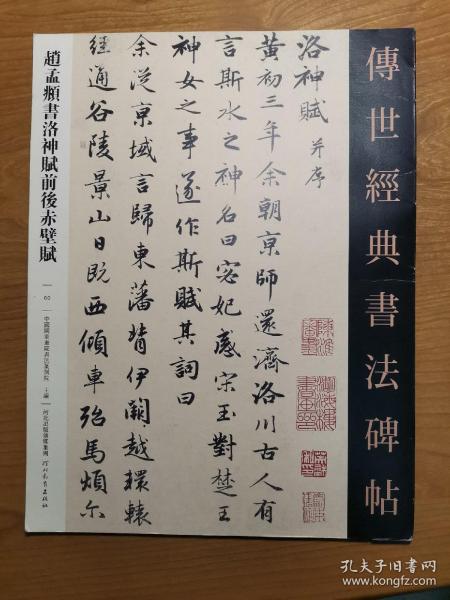 傳世經典書法碑帖
洛神賦 并序
黃初三年余朝京師還濟洛川古人有
言斯水之神名曰宓妃感宋玉對楚王
神女之事遂作斯賦其詞曰
余從京域言歸東藩背伊闕越轘轅
經通谷陵景山日既西傾車殆馬煩尓
趙孟頫書洛神賦前後赤壁賦
60
中國國家畫院書法篆刻院 主編
河北出版傳媒集團 河北教育出版社
孔夫子旧书网
www.kongfz.com